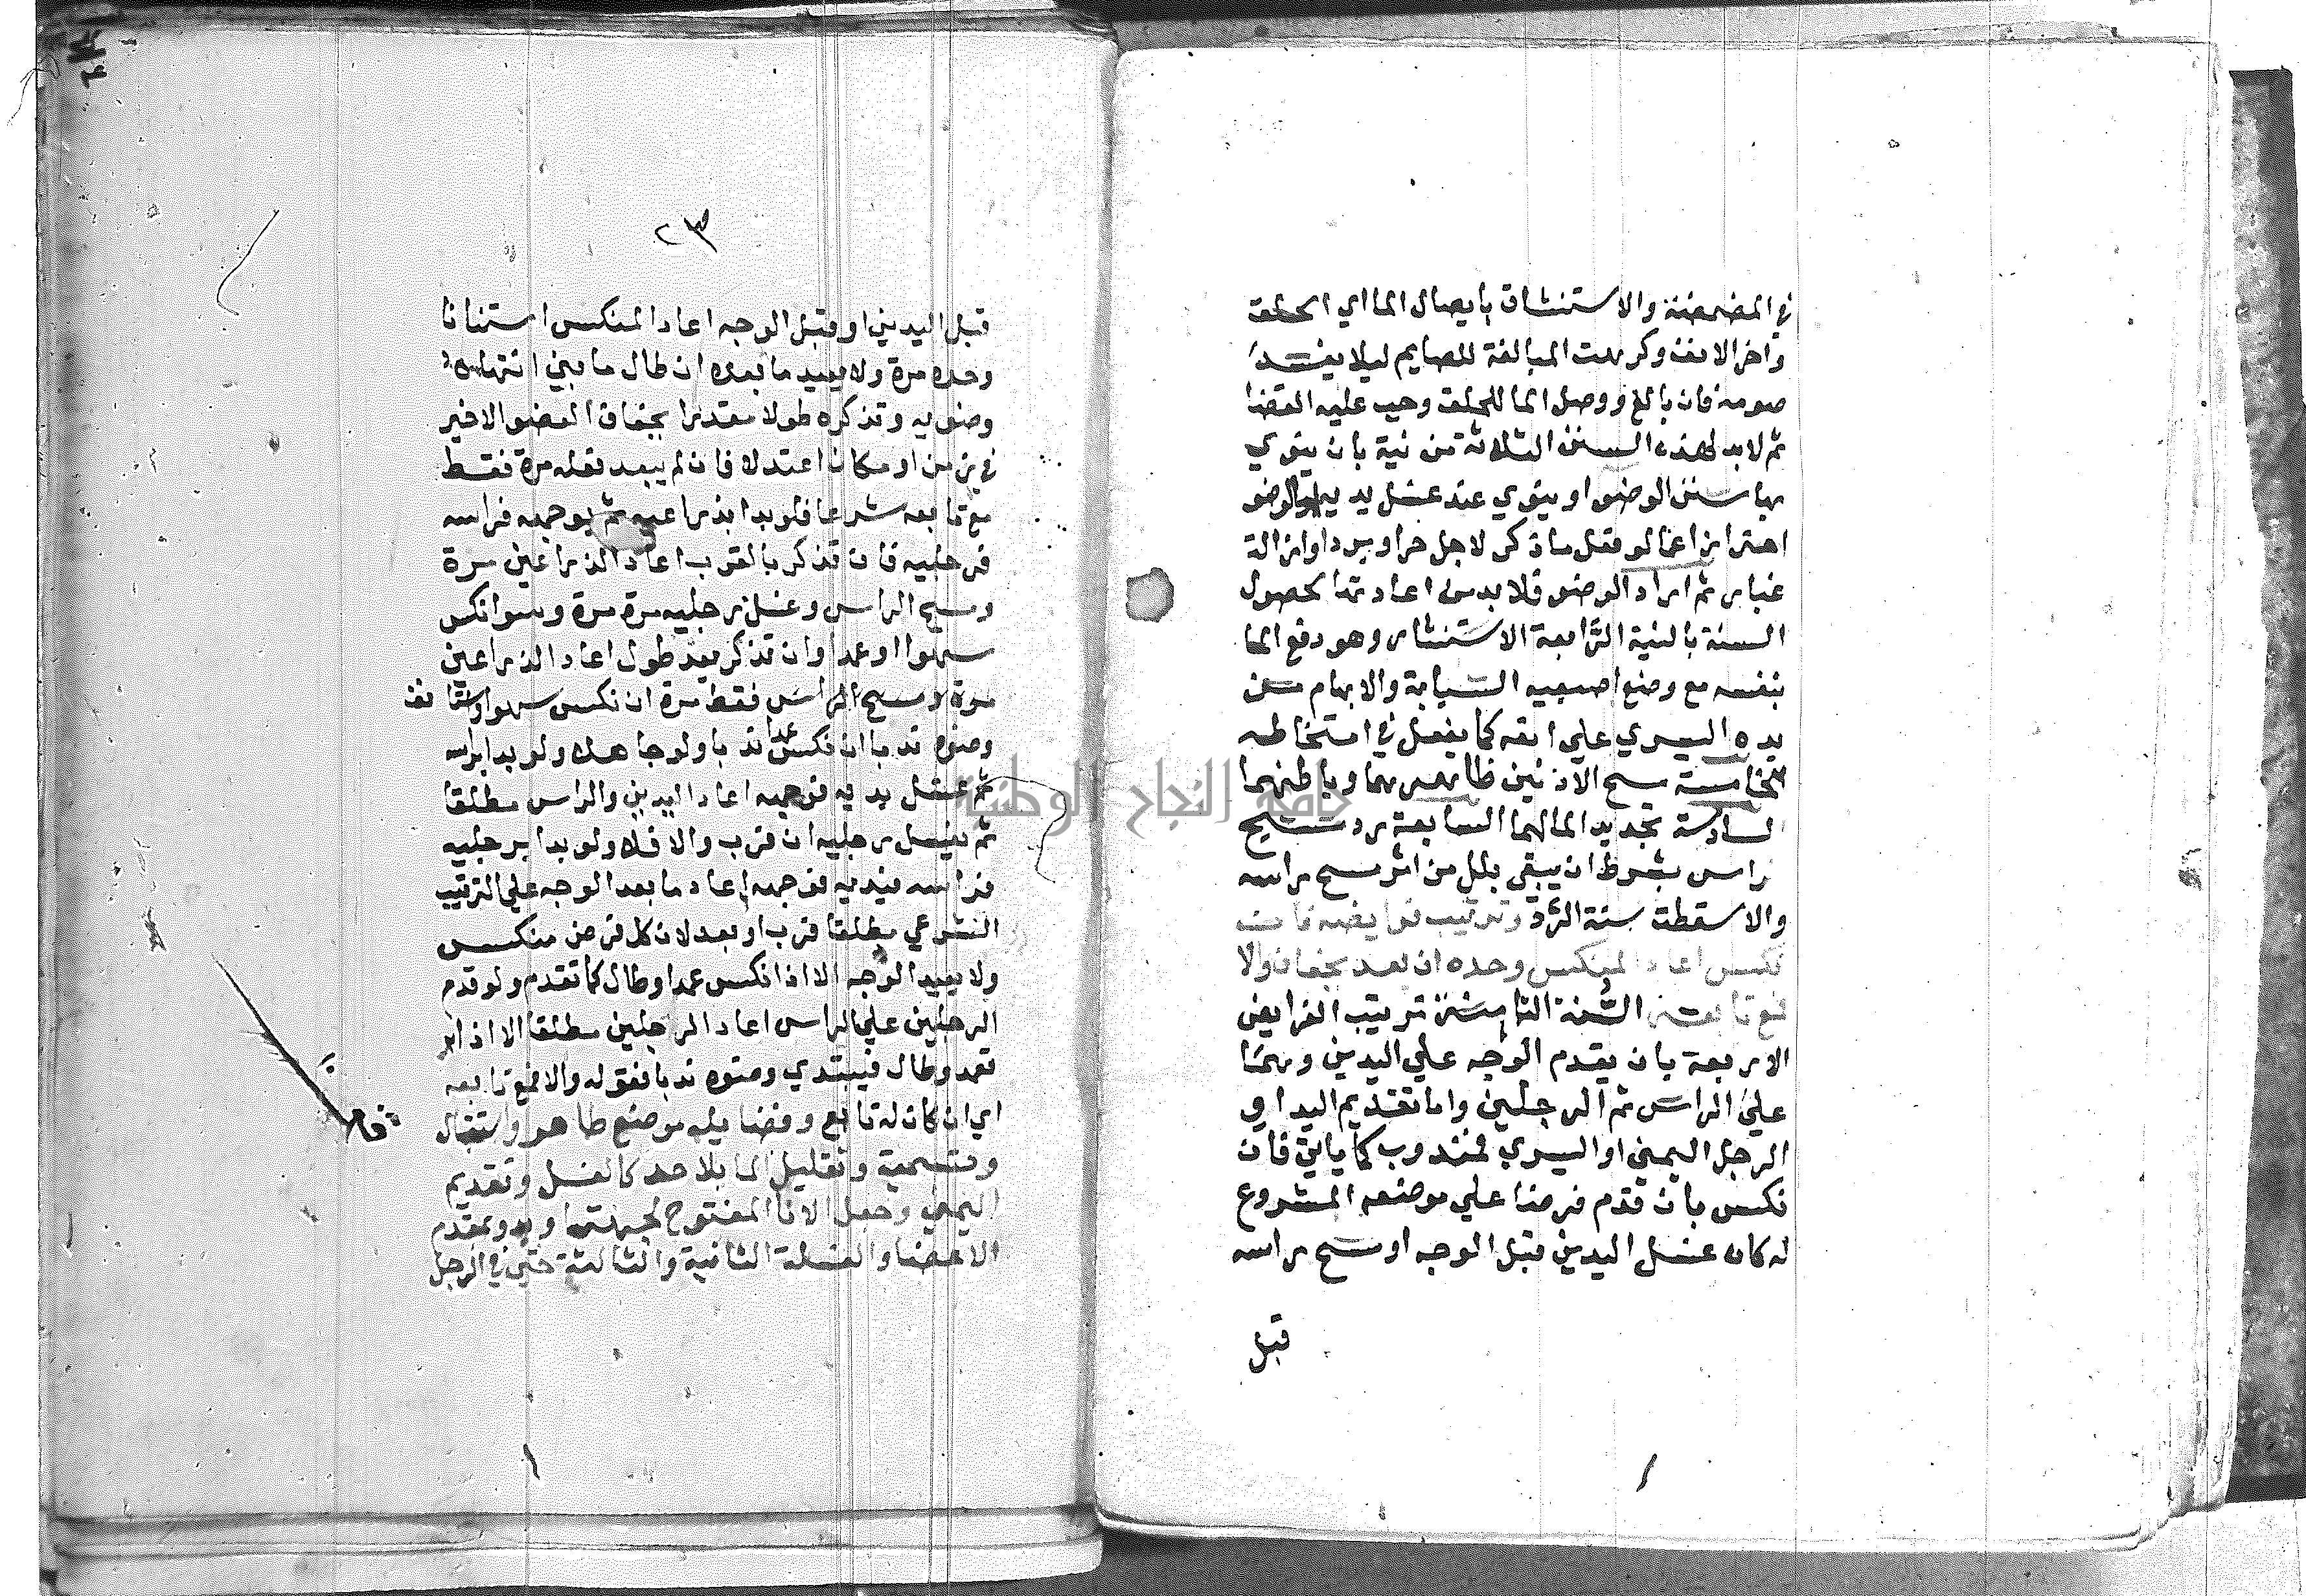 في المضمضة والاستنشاق بايصال الما اي الحلق
واخر الانف وكرهت المبالغة للصايم ليلا يفسد
صومه فان بالغ ووصل الما للحلق وجب عليه القضا
ثم لا بد لهذه السنن الثلاثة من نية بان ينوي
بها سنن الوضو او ينوي عند غسل يديه الوضو
احترازا عما لو فعل ما ذكر لاجل حر او برد او ازالة
غبار ثم اراد الوضو فلا بد من اعادتها لحصول
السنة بالنية الرابعة الاستنثار وهو دفع الما
بنفسه مع وضع اصبعيه السبابة والابهام من
يده اليسري علي انفه كما يفعل في امتخاطه
الخامسة مسح الاذنين ظاهرهما وباطنهما
السادسة تجديد الما لهما السابعة رد مسح
راس بشرط ان يبقي بلل من اثر مسح راسه
والا سقطت سنة الرد وترتيب فرايضه فان
نكس اعاد المنكس وحده ان بعد بجفاف والا
فمع تابعه السنة الثامنة ترتيب الفرايض
الاربعة بان يقدم الوجه علي اليدين وهما
علي الراس ثم الرجلين واما تقديم اليد او
الرجل اليمني او اليسري فمندوب كما ياتي فان
نكس بان قدم فرضا علي موضعه المشروع
له كان غسل اليدين قبل الوجه او مسح راسه
قبل
٢٣
قبل اليدين او قبل الوجه اعاد المنكس استنانا
وحده مرة ولا يعيد ما بعده ان طال ما بين انتهاء
وضويه وتذكره طولا مقدرا بجفاف العضو الاخير
في زمن او مكان اعتدلا فان لم يبعد فعله مرة فقط
مع تابعه شرعا فلو بدا بذراعيه ثم بوجهه فراسه
فرجليه فان تذكر بالقرب اعاد الذراعين مرة
ومسح الراس وغسل رجليه مرة مرة وسوا نكس
سهوا او عمدا وان تذكر بعد طول اعاد الذراعين
مرة ومسح الراس فقط مرة ان نكس سهوا واستانف
وضوه ندبا ان نكس عمدا ولو جاهلا ولو بدا براسه
ثم غسل يديه فوجهه اعاد اليدين والراس مطلقا
ثم يغسل رجليه ان قرب والا فلا ولو بدا برجليه
فراسه فيديه فوجهه اعاد ما بعد الوجه علي الترتيب
الشرعي مطلقا قرب او بعد لان كل فرض منكس
ولا يعيد الوجه الا اذا نكس عمدا وطال كما تقدم ولو قدم
الرجلين علي الراس اعاد الرجلين مطلقا الا اذا
تعمد وطال فيبتدي وضوه ندبا فقوله والا فمع تابعه
اي ان كان له تابع وفضايله موضع طاهر واستقبال
وتسمية وتقليل الما بلا حد كالغسل وتقديم
اليمني وجعل الانا المفتوح لجهتها وبدو بمقدم
الاعضا والغسلة الثانية والثالثة حتي في الرجل
جامعة النجاح الوطنية